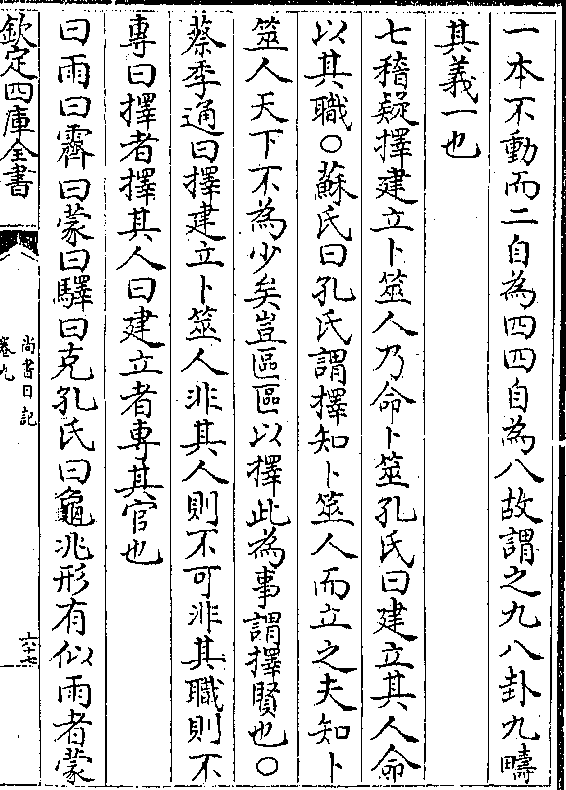 一本不動而二自為四四自為八故謂之九八卦九疇
其義一也
七稽疑擇建立卜筮人乃命卜筮孔氏曰建立其人命
以其職○蘇氏曰孔氏謂擇知卜筮人而立之夫知卜
筮人天下不為少矣豈區區以擇此為事謂擇賢也○
蔡季通曰擇建立卜筮人非其人則不可非其職則不
專曰擇者擇其人曰建立者專其官也
曰雨曰霽曰蒙曰驛曰克孔氏曰龜兆形有似雨者蒙
欽定四庫全書
尚書日記
卷九
六十七